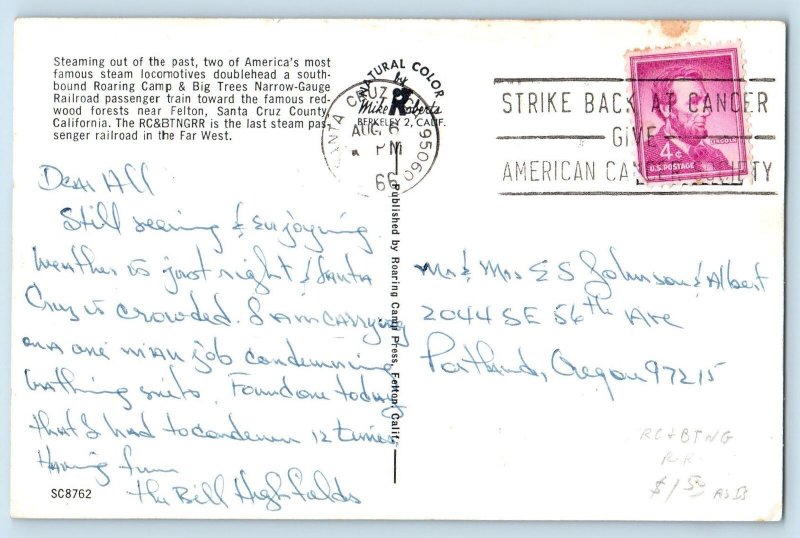 Steaming out of the past, two of America's most
famous steam locomotives doublehead a south-
bound Roaring Camp & Big Trees Narrow-Gauge
Railroad passenger train toward the famous red-
wood forests near Felton, Santa Cruz County,
California. The RC&BTNGRR is the last steam pas-
senger railroad in the Far West.
NATURAL COLOR
by
Mike Roberts
BERKELEY 2, CALIF.
SANTA CRUZ 95060
AUG 6
PM
66
STRIKE BACK AT CANCER
GIVE
AMERICAN CANCER SOCIETY
LINCOLN
4¢
U.S. POSTAGE
Dear All
Still seeing & enjoying
Weather is just right & Santa
Cruz is crowded. I am carrying
on a one man job condemning
bathing suits. Found one today
that I had to condemn 12 times.
Having fun
the Bill Highfields
Published by Roaring Camp Press, Felton, Calif.
Mr & Mrs E S Johnson & Albert
2044 SE 56th Ave
Portland, Oregon 97215
RC&BTNG
R.R.
$1.50
SC8762